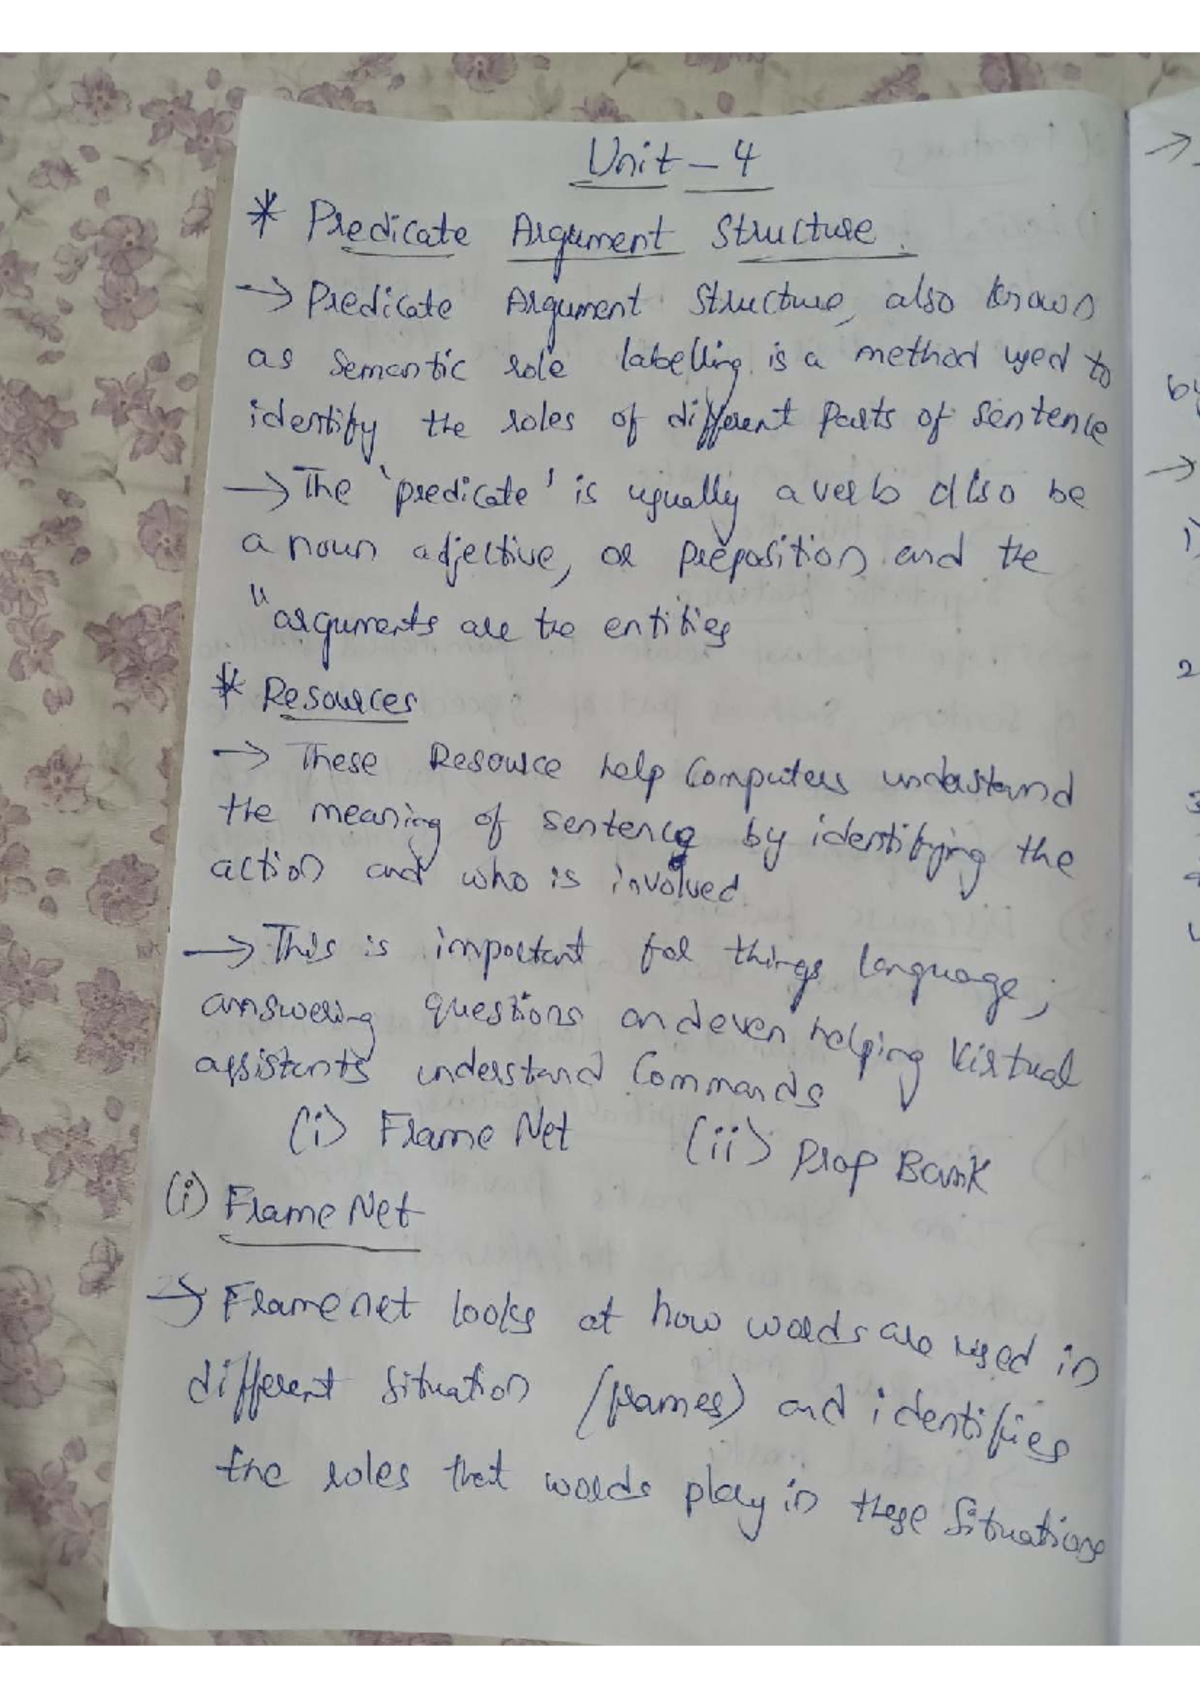 Unit - 4
* Predicate Argument Structure.
→ Predicate Argument Structure, also known
as Semantic role labelling is a method used to
identify the roles of different parts of sentence
→ The 'predicate' is usually a verb also be
a noun adjective, or preposition and the
"arguments are the entities
* Resources
→ These Resource help Computers understand
the meaning of sentence by identifying the
action and who is involved
→ This is important for things language,
answering questions and even helping Virtual
assistants understand Commands
(i) Frame Net (ii) Prop Bank
(i) Frame Net
→ Framenet looks at how words are used in
different situation (frames) and identifies
the roles that words play in these Situations
→
by
→
1)
2
3